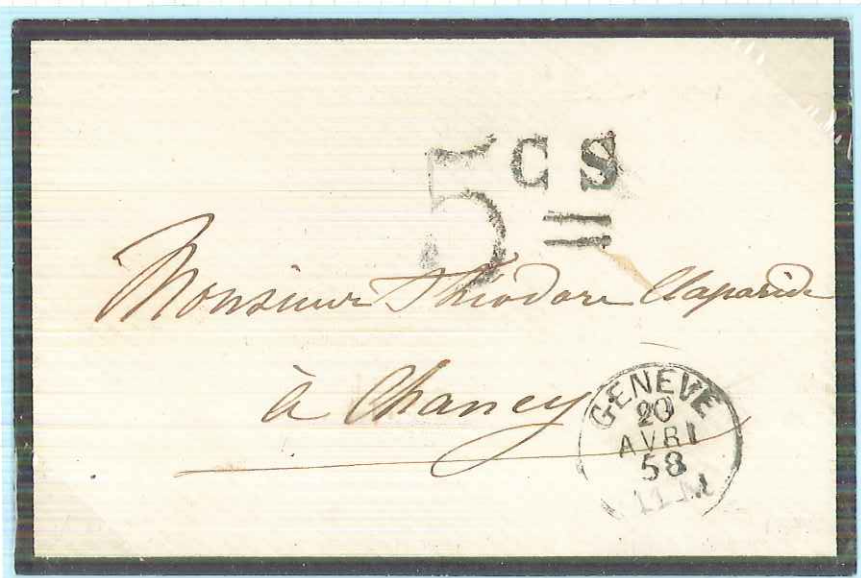 5 C S
Monsieur Théodore Claparède
à Chancy
GENEVE
20
AVRI
58
11 M